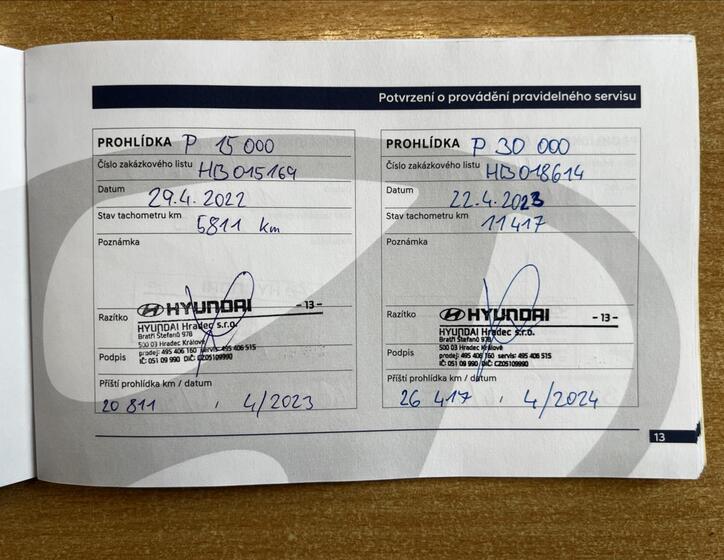 Potvrzení o provádění pravidelného servisu
PROHLÍDKA P 15 000
Číslo zakázkového listu HB015169
Datum 29.4.2022
Stav tachometru km 5811 km
Poznámka
Razítko HYUNDAI -13-
HYUNDAI Hradec s.r.o.
Bratří Štefanů 978
500 03 Hradec Králové
prodej: 495 406 160 servis: 495 406 515
IČ: 051 09 990 DIČ: CZ05109990
Podpis
Příští prohlídka km / datum
20 811 , 4/2023
PROHLÍDKA P 30 000
Číslo zakázkového listu HB018614
Datum 22.4.2023
Stav tachometru km 11417
Poznámka
Razítko HYUNDAI -13-
HYUNDAI Hradec s.r.o.
Bratří Štefanů 978
500 03 Hradec Králové
prodej: 495 406 160 servis: 495 406 515
IČ: 051 09 990 DIČ: CZ05109990
Podpis
Příští prohlídka km / datum
26 417 , 4/2024
13